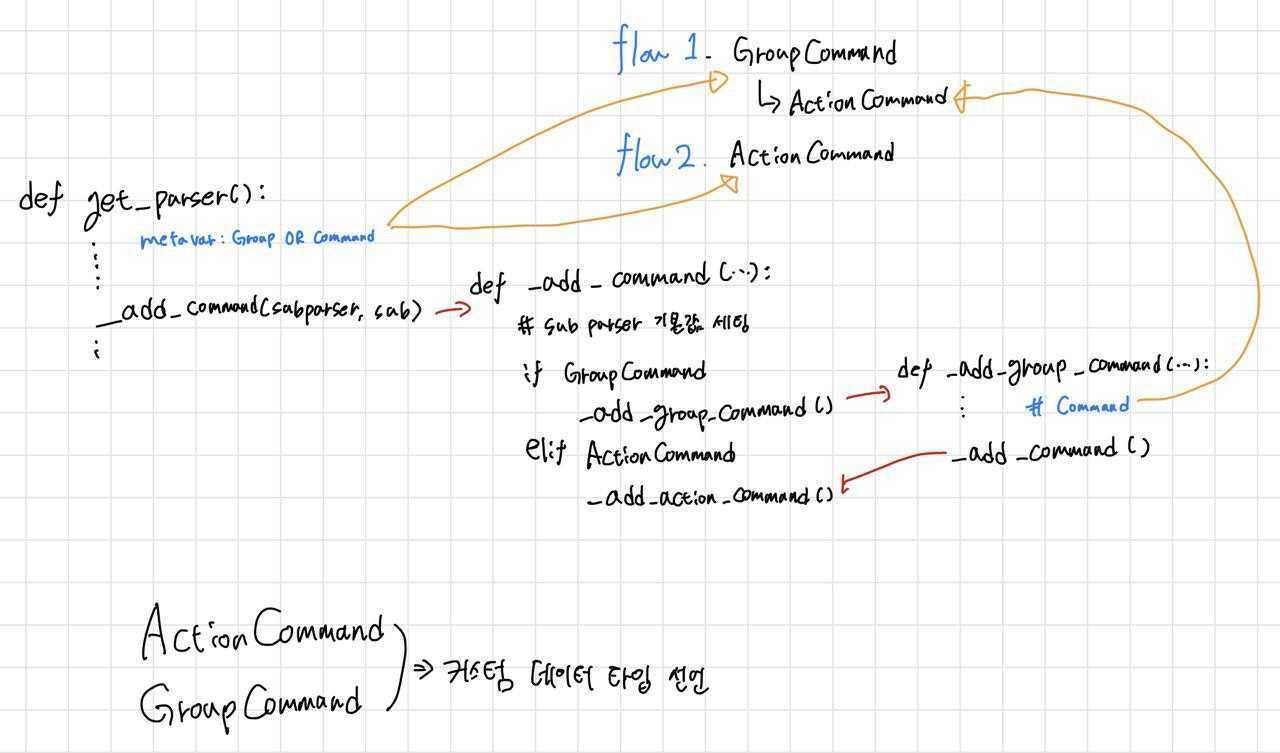 flow 1. GroupCommand
↳ ActionCommand
flow 2. ActionCommand
def get_parser():
metavar: Group OR Command
_add_command(subparser, sub)
def _add_command(...):
# sub parser 기본값 세팅
if GroupCommand
_add_group_command()
elif ActionCommand
_add_action_command()
def _add_group_command(...):
# Command
_add_command()
ActionCommand
GroupCommand
⇒ 커스텀 데이터 타입 선언